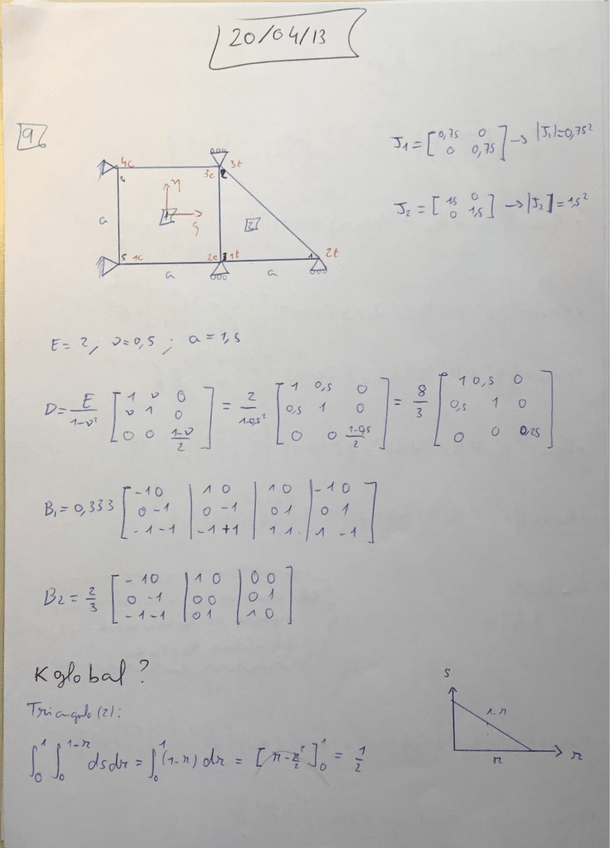 20/04/13
9
J₁ = [0,75 0; 0 0,75] → |J₁| = 0,75²
J₂ = [1,5 0; 0 1,5] → |J₂| = 1,5²
4c 3c 3t
η
a 1 ξ 2
1c 2c 1t 2t
a a
E = 2; ν = 0,5; a = 1,5
D = E/1-ν² [1 ν 0; ν 1 0; 0 0 1-ν/2] = 2/1-0,5² [1 0,5 0; 0,5 1 0; 0 0 1-0,5/2] = 8/3 [1 0,5 0; 0,5 1 0; 0 0 0,25]
B₁ = 0,333 [-1 0 | 1 0 | 1 0 | -1 0; 0 -1 | 0 -1 | 0 1 | 0 1; -1 -1 | -1 +1 | 1 1 | 1 -1]
B2 = 2/3 [-1 0 | 1 0 | 0 0; 0 -1 | 0 0 | 0 1; -1 -1 | 0 1 | 1 0]
K global?
Triangulo (2):
∫₀¹ ∫₀¹⁻ʳ ds dr = ∫₀¹ (1-r) dr = [r - r²/2]₀¹ = 1/2
s
1-r
r r